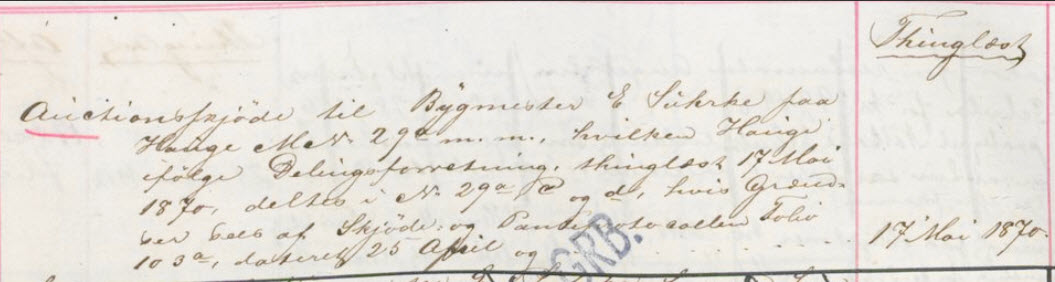 Thinglæst
Auctionsskjöde til Bygmester E Sührke paa
Hauge M.N. 29a m.m., hvilken Hauge
ifølge Delingsforretning thinglæst 17 Mai
1870, deltes i N. 29a, c og d, hvis Grænd-
ser sees af Skjöde- og Panteprotocollen Folio
103a, dateret 25 April og
17 Mai 1870.
GRB.